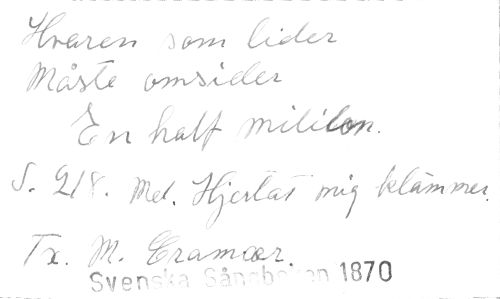 Hvaren som lider
Måste omsider
En half million.
S. 218. Mel. Hjertat mig klämmer.
Tx. M. Cramær.
Svenska Sångboken 1870